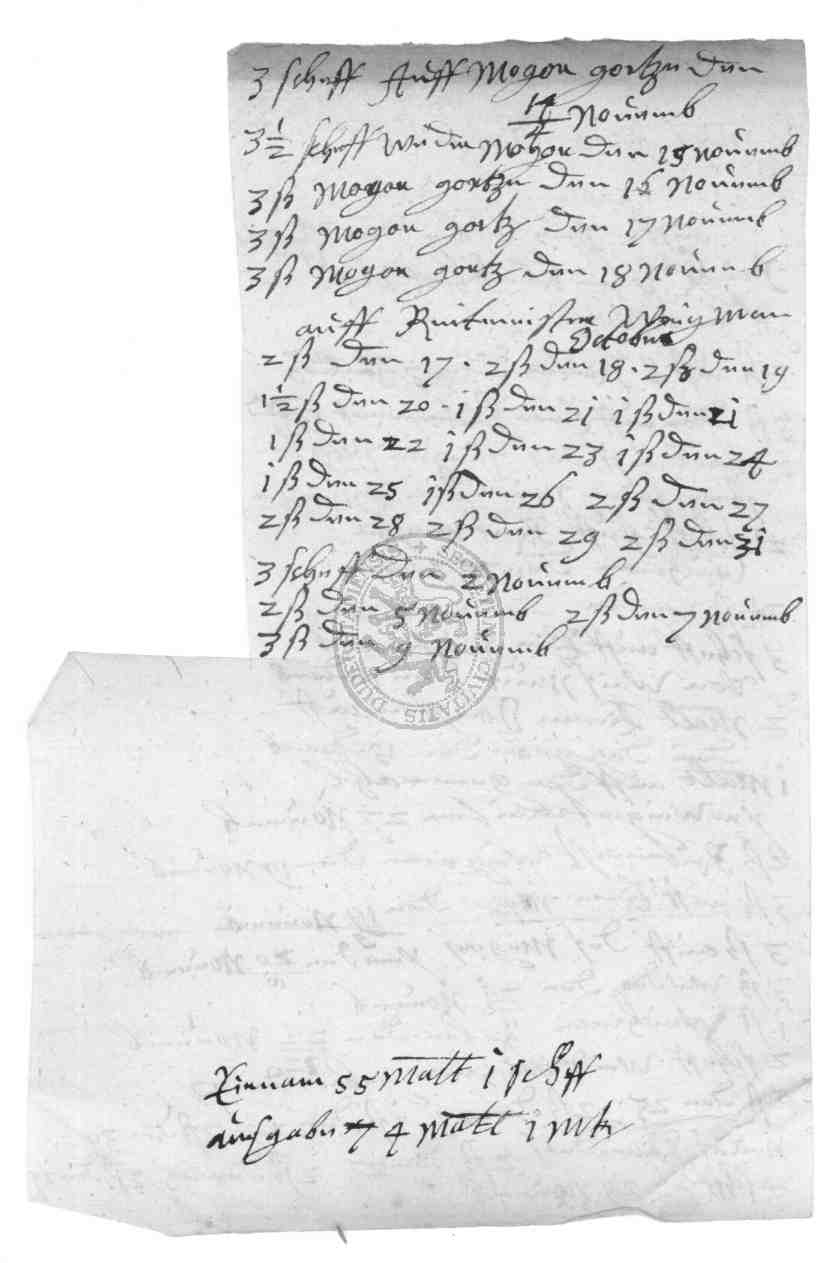 3 scheff Auff Mogon gortzen den
14 Nouemb
3½ scheff den Mogon den 15 nouemb
3 ß Mogon gortzen den 16 Nouemb
3 ß Mogon gortz den 17 Nouemb
3 ß Mogon gortz den 18 Nouemb
auff Ritmeister
October
2 ß den 17 . 2 ß den 18 . 2 ß den 19
1½ ß den 20 . 1 ß den 21 1 ß den 21
1 ß den 22 1 ß den 23 1 ß den 24
1 ß den 25 1 ß den 26 2 ß den 27
2 ß den 28 2 ß den 29 2 ß den 31
3 scheff den 2 Nouemb
2 ß den 5 Nouemb 2 ß den 7 Nouemb
3 ß den 9 Nouemb
Einnam 55 Malt 1 scheff
ausgaben 74 Malt 1 Mtz